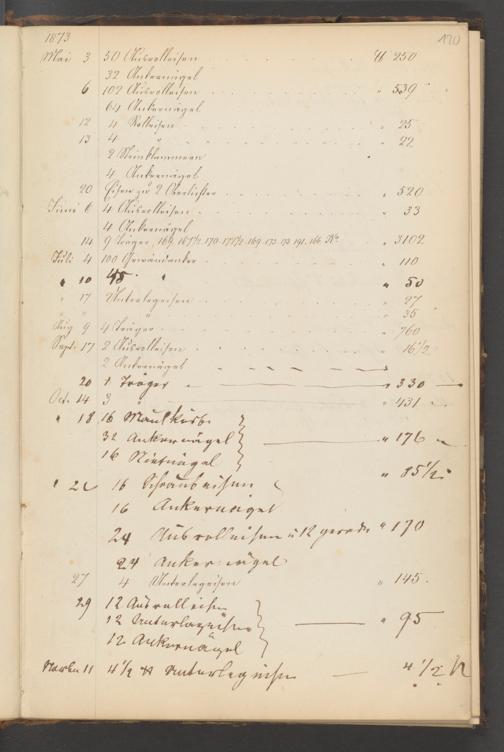 1873 120
Mai 3 50 Ausrolleisen ℔ 250
32 Ankernägel
6 102 Ausrolleisen " 539
64 Ankernägel
12 4 Rolleisen " 25
13 4 " " 22
2 Steinklammern
4 Ankernägel
20 Eisen zu 2 Oberlichter " 520
Juni 6 4 Ausrolleisen " 33
4 Ankernägel
14 9 Träger, 169. 167½. 170. 171½. 169. 173. 173. 191. 166. " 3102
Juli 4 100 Gewändanker " 110
" 10 45 " " 50
" 17 Unterlegeisen " 27
" " " 35
Aug 9 4 Träger " 760
Sept. 17 2 Ausrolleisen " 16½
2 Ankernägel
20 1 Träger " 330
Oct. 14 3 " 431
" 18 16 Maulkörbe
32 Ankernägel " 176
16 Nietnägel
" 85½
" 22 16 Schraubeisen
16 Ankernägel
24 Ausrolleisen u 12 gerade " 170
24 Ankernägel
27 4 Unterlegeisen " 145
29 12 Ausrolleisen
12 Unterlageisen " 95
12 Ankernägel
Novbr 11 4½ ℔ Unterlegeisen 4½ ℔